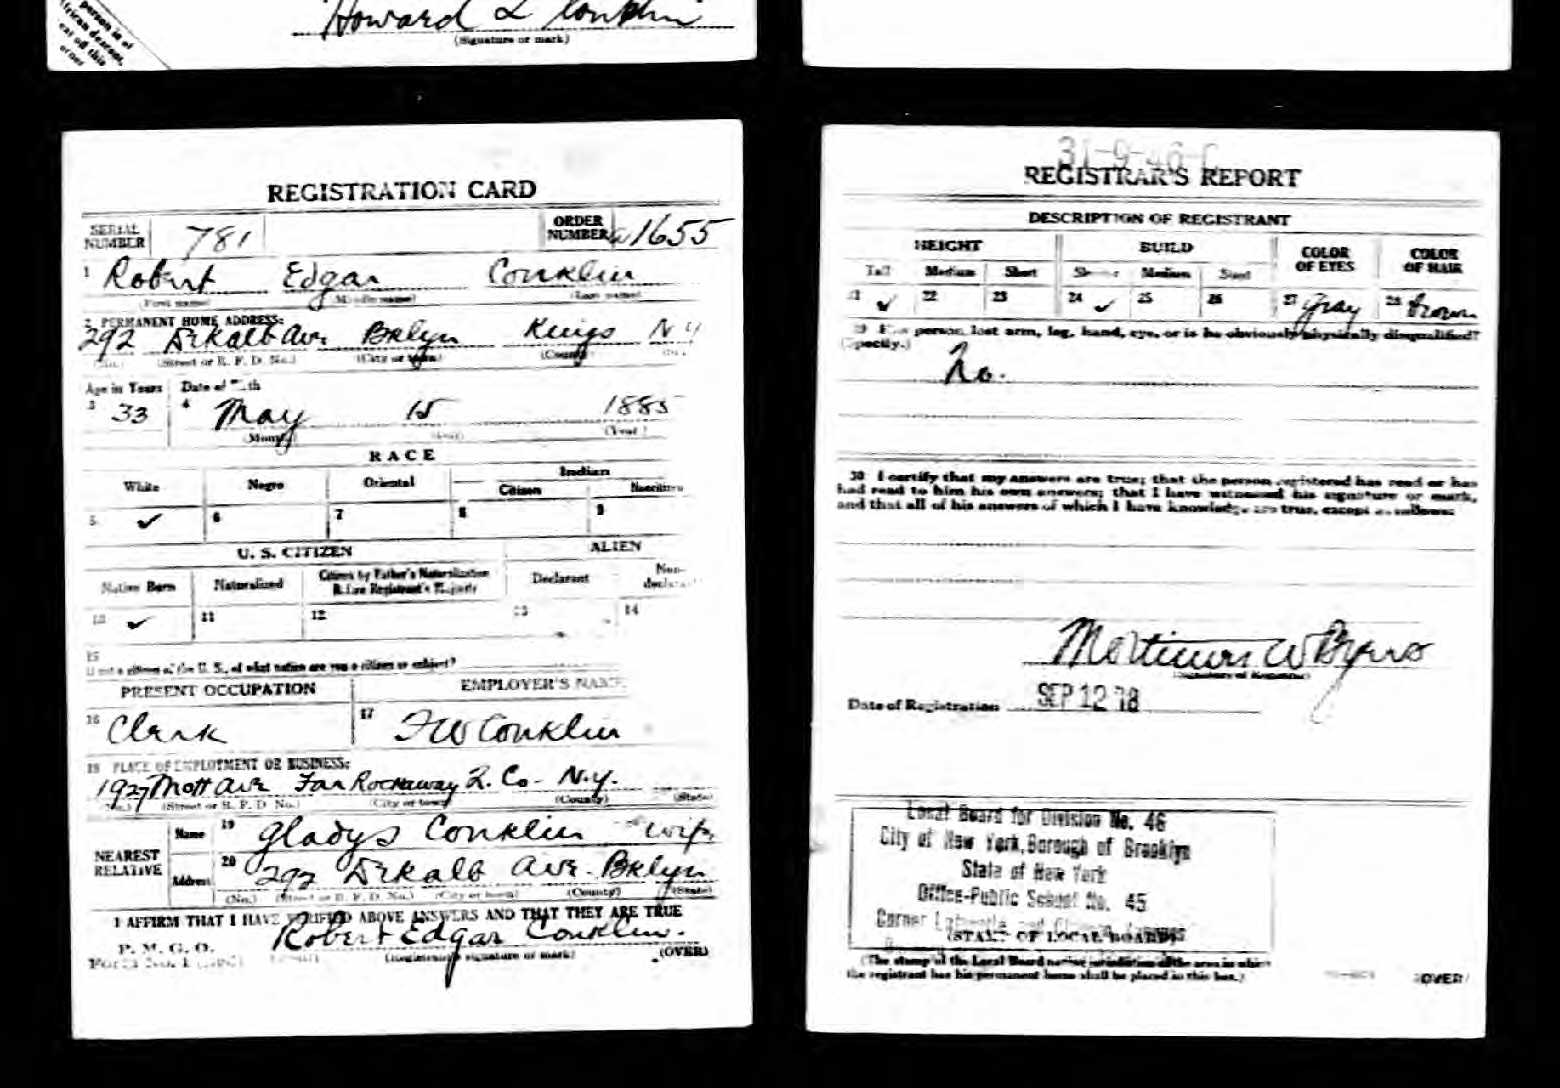 person is of
African descent,
cut off this
corner
Howard L Conklin
(Signature or mark)
REGISTRATION CARD
SERIAL NUMBER 781 ORDER NUMBER 1655
1 Robert Edgar Conklin
(First name) (Middle name) (Last name)
2 PERMANENT HOME ADDRESS:
292 DeKalb Ave Bklyn Kings N Y
(No.) (Street or R. F. D. No.) (City or town) (County)
Age in Years Date of Birth
3 33 4 May 15 1885
(Month) (Day) (Year)
RACE
White Negro Oriental Indian
Citizen Noncitizen
5 ✓ 6 7 8 9
U. S. CITIZEN ALIEN
Native Born Naturalized Citizen by Father's Naturalization Before Registrant's Majority Declarant Non-declarant
10 ✓ 11 12 13 14
15
If not a citizen of the U. S., of what nation are you a citizen or subject?
PRESENT OCCUPATION EMPLOYER'S NAME
16 Clerk 17 F W Conklin
18 PLACE OF EMPLOYMENT OR BUSINESS:
1927 Mott Ave Far Rockaway Q. Co- N.Y.
(No.) (Street or R. F. D. No.) (City or town) (County) (State)
NEAREST RELATIVE Name 19 Gladys Conklin - wife
Address 20 292 DeKalb Ave. Bklyn
(No.) (Street or R. F. D. No.) (City or town) (County) (State)
I AFFIRM THAT I HAVE VERIFIED ABOVE ANSWERS AND THAT THEY ARE TRUE
P. M. G. O.
Form No. 1 Robert Edgar Conklin.
(Registrant's signature or mark) (OVER)
31-9-46-C
REGISTRAR'S REPORT
DESCRIPTION OF REGISTRANT
HEIGHT BUILD COLOR OF EYES COLOR OF HAIR
Tall Medium Short Slender Medium Stout
21 ✓ 22 23 24 ✓ 25 26 27 Gray 28 brown
29 Has person lost arm, leg, hand, eye, or is he obviously physically disqualified?
(Specify.)
No.
30 I certify that my answers are true; that the person registered has read or has
had read to him his own answers; that I have witnessed his signature or mark,
and that all of his answers of which I have knowledge are true, except as follows:
Mortimer W Byers
(Signature of Registrar)
Date of Registration SEP 12 18
Local Board for Division No. 46
City of New York, Borough of Brooklyn
State of New York
Office-Public School No. 45
Corner Lafayette and Classon Avenues
(STAMP OF LOCAL BOARD)
(The stamp of the Local Board having jurisdiction of the area in which
the registrant has his permanent home shall be placed in this box.)
(OVER)